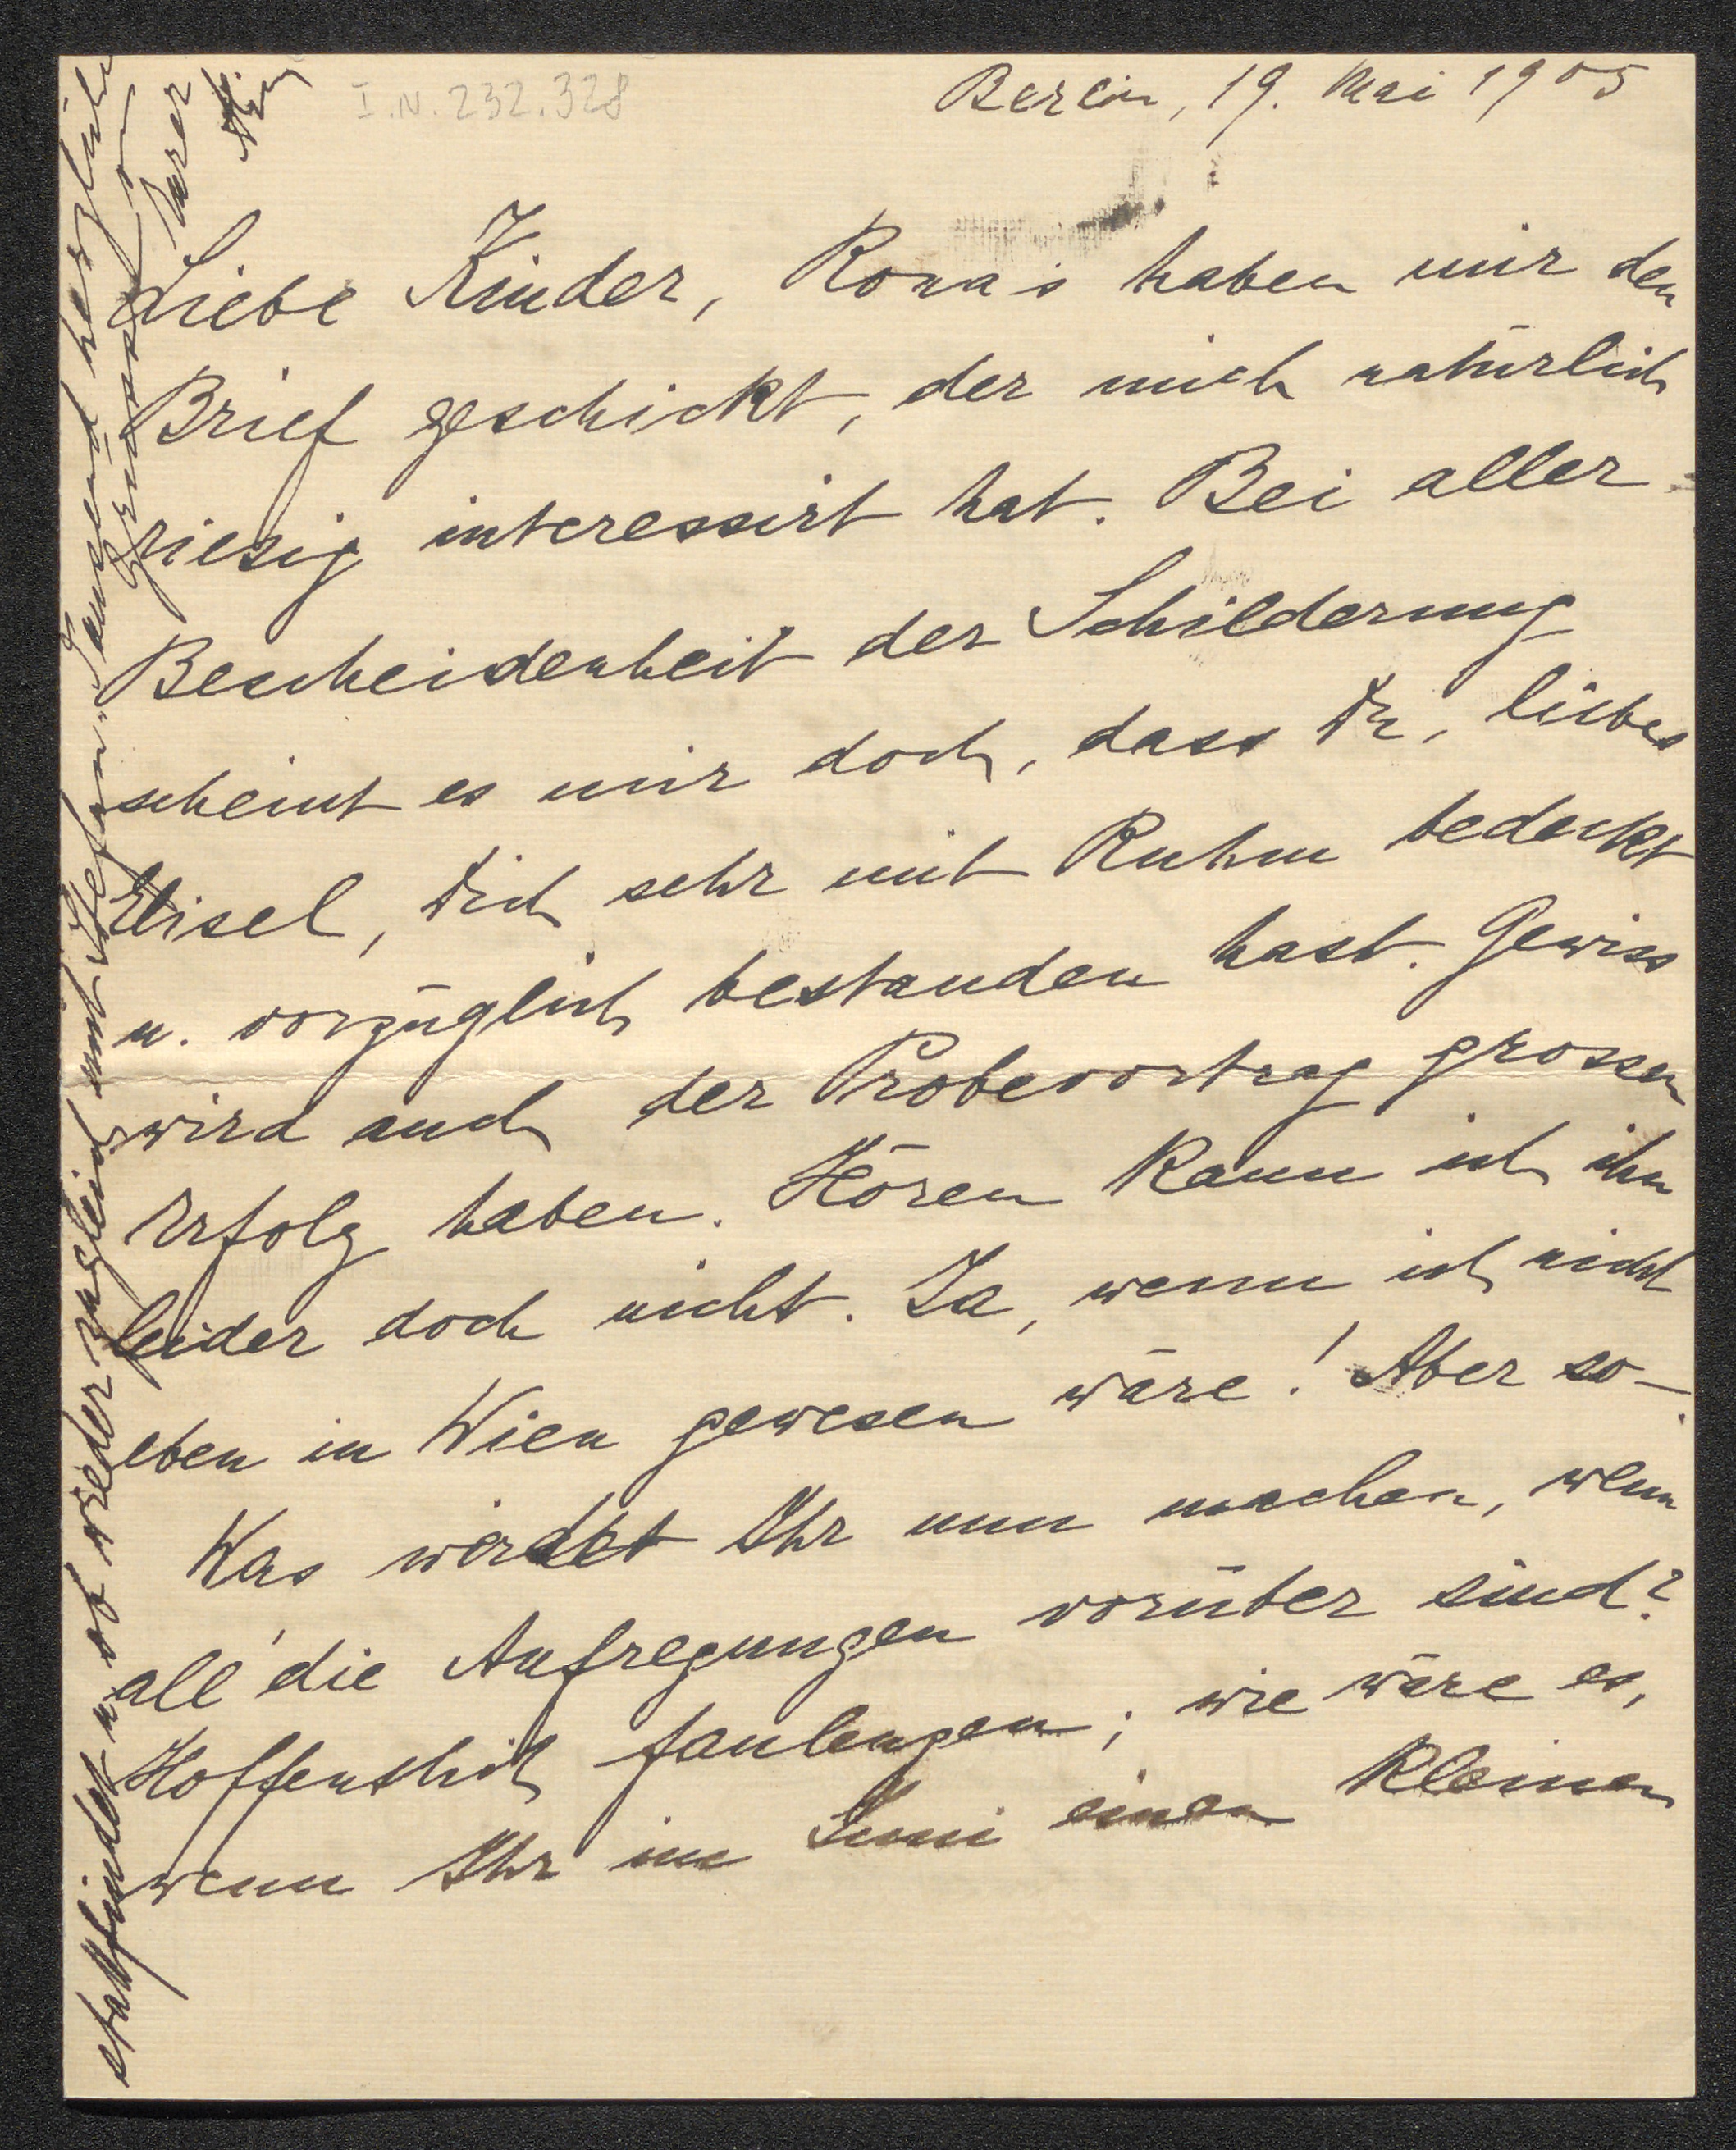 I.N. 232.328
Berlin, 19. Mai 1905
Liebe Kinder, Rona's haben mir den
Brief geschickt, der mich natürlich
riesig interessirt hat. Bei aller
Bescheidenheit der Schilderung
scheint es mir doch, dass Du, liebes
Elisel, Dich sehr mit Ruhm bedeckt
u. vorzüglich bestanden hast. Gewiss
wird auch der Probevortrag grossen
Erfolg haben. Hören kann ich ihn
leider doch nicht. Ja, wenn ich nicht
eben in Wien gewesen wäre! Aber so –
Was werdet Ihr nun machen, wenn
all' die Aufregungen vorüber sind?
Hoffentlich faulenzen; wie wäre es,
wenn Ihr im Juni einen kleinen
stattfindet u. ob wieder zugleich mit Stefan. Tausend herzliche
Grüsse von
Eurer